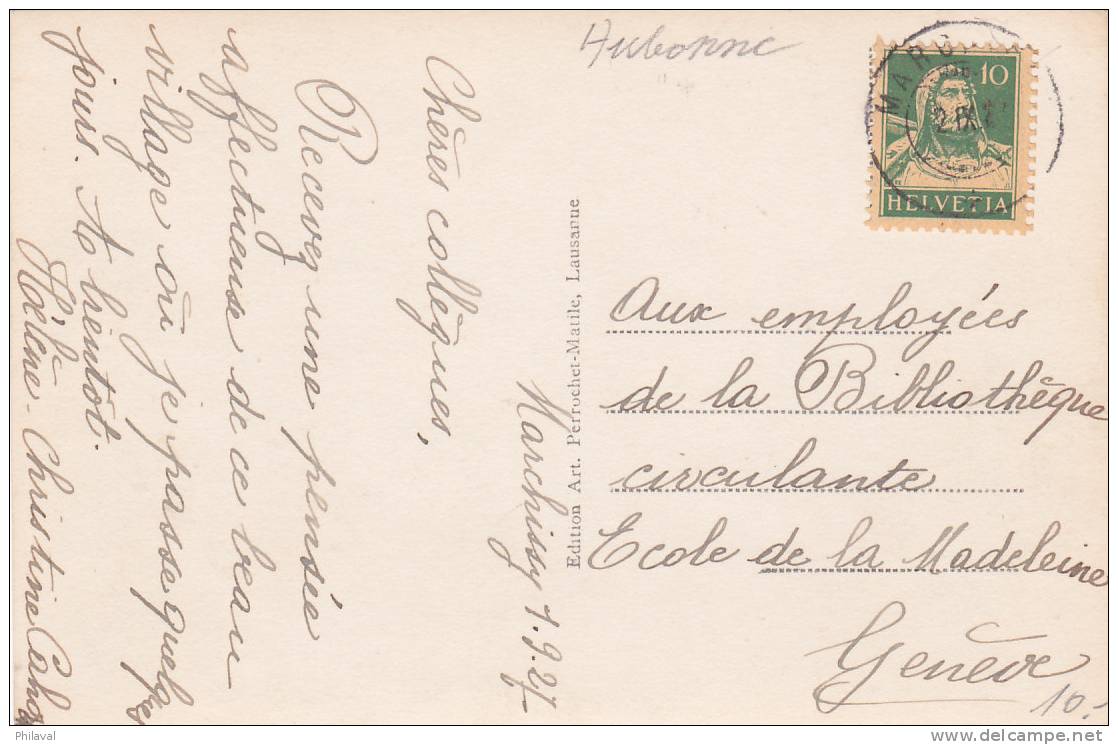 Aubonne
10
HELVETIA
2.IX.2
Marchissy 1.9.27
Chères collègues,
Recevez une pensée
affectueuse de ce beau
village où je passe quelques
jours. A bientôt.
Hélène-Christine
Edition Art. Perrochet-Matile, Lausanne
Aux employées
de la Bibliothèque
circulante
Ecole de la Madeleine
Genève
10.-
Philaval
www.delcampe.net